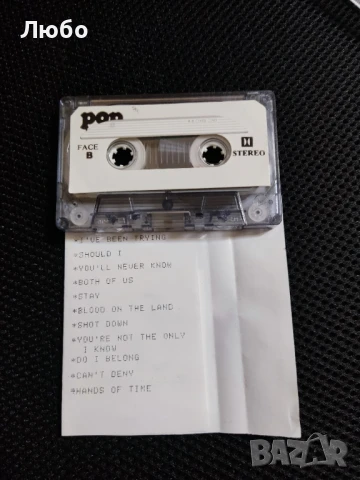 Любо
pop
FACE
B
STEREO
*I'VE BEEN TRYING
*SHOULD I
*YOU'LL NEVER KNOW
*BOTH OF US
*STAY
*BLOOD ON THE LAND
*SHOT DOWN
*YOU'RE NOT THE ONLY
I KNOW
*DO I BELONG
*CAN'T DENY
*HANDS OF TIME
BAZAR